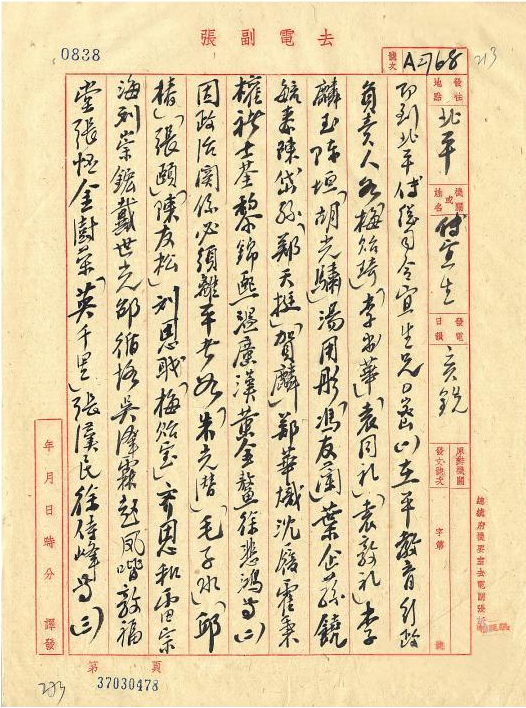 去電副張
0838
213
號文 A2768
發往地點 北平
機關或姓名 傅宜生
發電日韻 亥銑
原辦機關發文號次 字第 號
總統府機要室去電副張紙
即到北平傅總司令宜生兄○密(一)在平教育行政
負責人如梅貽琦「李書華」「袁同礼」「袁敦礼」李
麟玉陈垣「胡先驌」湯用彤馮友蘭「葉企蓀」饒
毓泰陳岱孙「鄭天挺」「賀麟」鄭華熾沈履霍秉
權褚士荃黎錦熙温廣漢黃金鰲徐悲鴻等(二)
因政治関係必須離平者如「朱光潛」「毛子水」「邱
椿」「張頤」「陳友松」刘思职「梅貽宝」齐思和雷宗
海刘崇鋐戴世光邵循恪吳澤霖赵凤喈敦福
堂張恆金澍荣「英千里」張漢民徐侍峰等(三)
年月日時分 譯發
第 頁
37030478
213